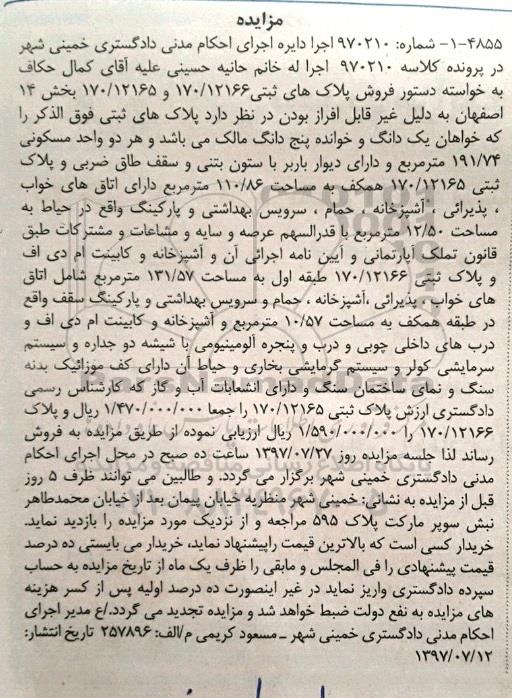 مزایده
۴۸۵۵-۱- شماره: ۹۷۰۲۱۰ اجرا دایره اجرای احکام مدنی دادگستری خمینی شهر
در پرونده کلاسه ۹۷۰۲۱۰ اجرا له خانم حانیه حسینی علیه آقای کمال حکاف
به خواسته دستور فروش پلاک های ثبتی۱۷۰/۱۲۱۶۶ و ۱۷۰/۱۲۱۶۵ بخش ۱۴
اصفهان به دلیل غیر قابل افراز بودن در نظر دارد پلاک های ثبتی فوق الذکر را
که خواهان یک دانگ و خوانده پنج دانگ مالک می باشد و هر دو واحد مسکونی
۱۹۱/۷۴ مترمربع و دارای دیوار باربر با ستون بتنی و سقف طاق ضربی و پلاک
ثبتی ۱۷۰/۱۲۱۶۵ همکف به مساحت ۱۱۰/۸۶ مترمربع دارای اتاق های خواب
، پذیرائی ، آشپزخانه ، حمام ، سرویس بهداشتی و پارکینگ واقع در حیاط به
مساحت ۱۲/۵۰ مترمربع با قدرالسهم عرصه و سایه و مشاعات و مشترکات طبق
قانون تملک آپارتمانی و آیین نامه اجرائی آن و آشپزخانه و کابینت ام دی اف
و پلاک ثبتی ۱۷۰/۱۲۱۶۶ طبقه اول به مساحت ۱۳۱/۵۷ مترمربع شامل اتاق
های خواب ، پذیرائی ،آشپزخانه ، حمام و سرویس بهداشتی و پارکینگ سقف واقع
در طبقه همکف به مساحت ۱۰/۵۷ مترمربع و آشپزخانه و کابینت ام دی اف و
درب های داخلی چوبی و درب و پنجره آلومینیومی با شیشه دو جداره و سیستم
سرمایشی کولر و سیستم گرمایشی بخاری و حیاط آن دارای کف موزائیک بدنه
سنگ و نمای ساختمان سنگ و دارای انشعابات آب و گاز که کارشناس رسمی
دادگستری ارزش پلاک ثبتی ۱۷۰/۱۲۱۶۵ را جمعا ۱/۴۷۰/۰۰۰/۰۰۰ ریال و پلاک
۱۷۰/۱۲۱۶۶ را ۱/۵۹۰/۰۰۰/۰۰۰ ریال ارزیابی نموده از طریق مزایده به فروش
رساند لذا جلسه مزایده روز ۱۳۹۷/۰۷/۲۷ ساعت ده صبح در محل اجرای احکام
مدنی دادگستری خمینی شهر برگزار می گردد. و طالبین می توانند ظرف ۵ روز
قبل از مزایده به نشانی: خمینی شهر منظریه خیابان پیمان بعد از خیابان محمدطاهر
نبش سوپر مارکت پلاک ۵۹۵ مراجعه و از نزدیک مورد مزایده را بازدید نماید.
خریدار کسی است که بالاترین قیمت راپیشنهاد نماید، خریدار می بایستی ده درصد
قیمت پیشنهادی را فی المجلس و مابقی را ظرف یک ماه از تاریخ مزایده به حساب
سپرده دادگستری واریز نماید در غیر اینصورت ده درصد اولیه پس از کسر هزینه
های مزایده به نفع دولت ضبط خواهد شد و مزایده تجدید می گردد./ع مدیر اجرای
احکام مدنی دادگستری خمینی شهر _ مسعود کریمی م/الف: ۲۵۷۸۹۶ تاریخ انتشار:
۱۳۹۷/۰۷/۱۲